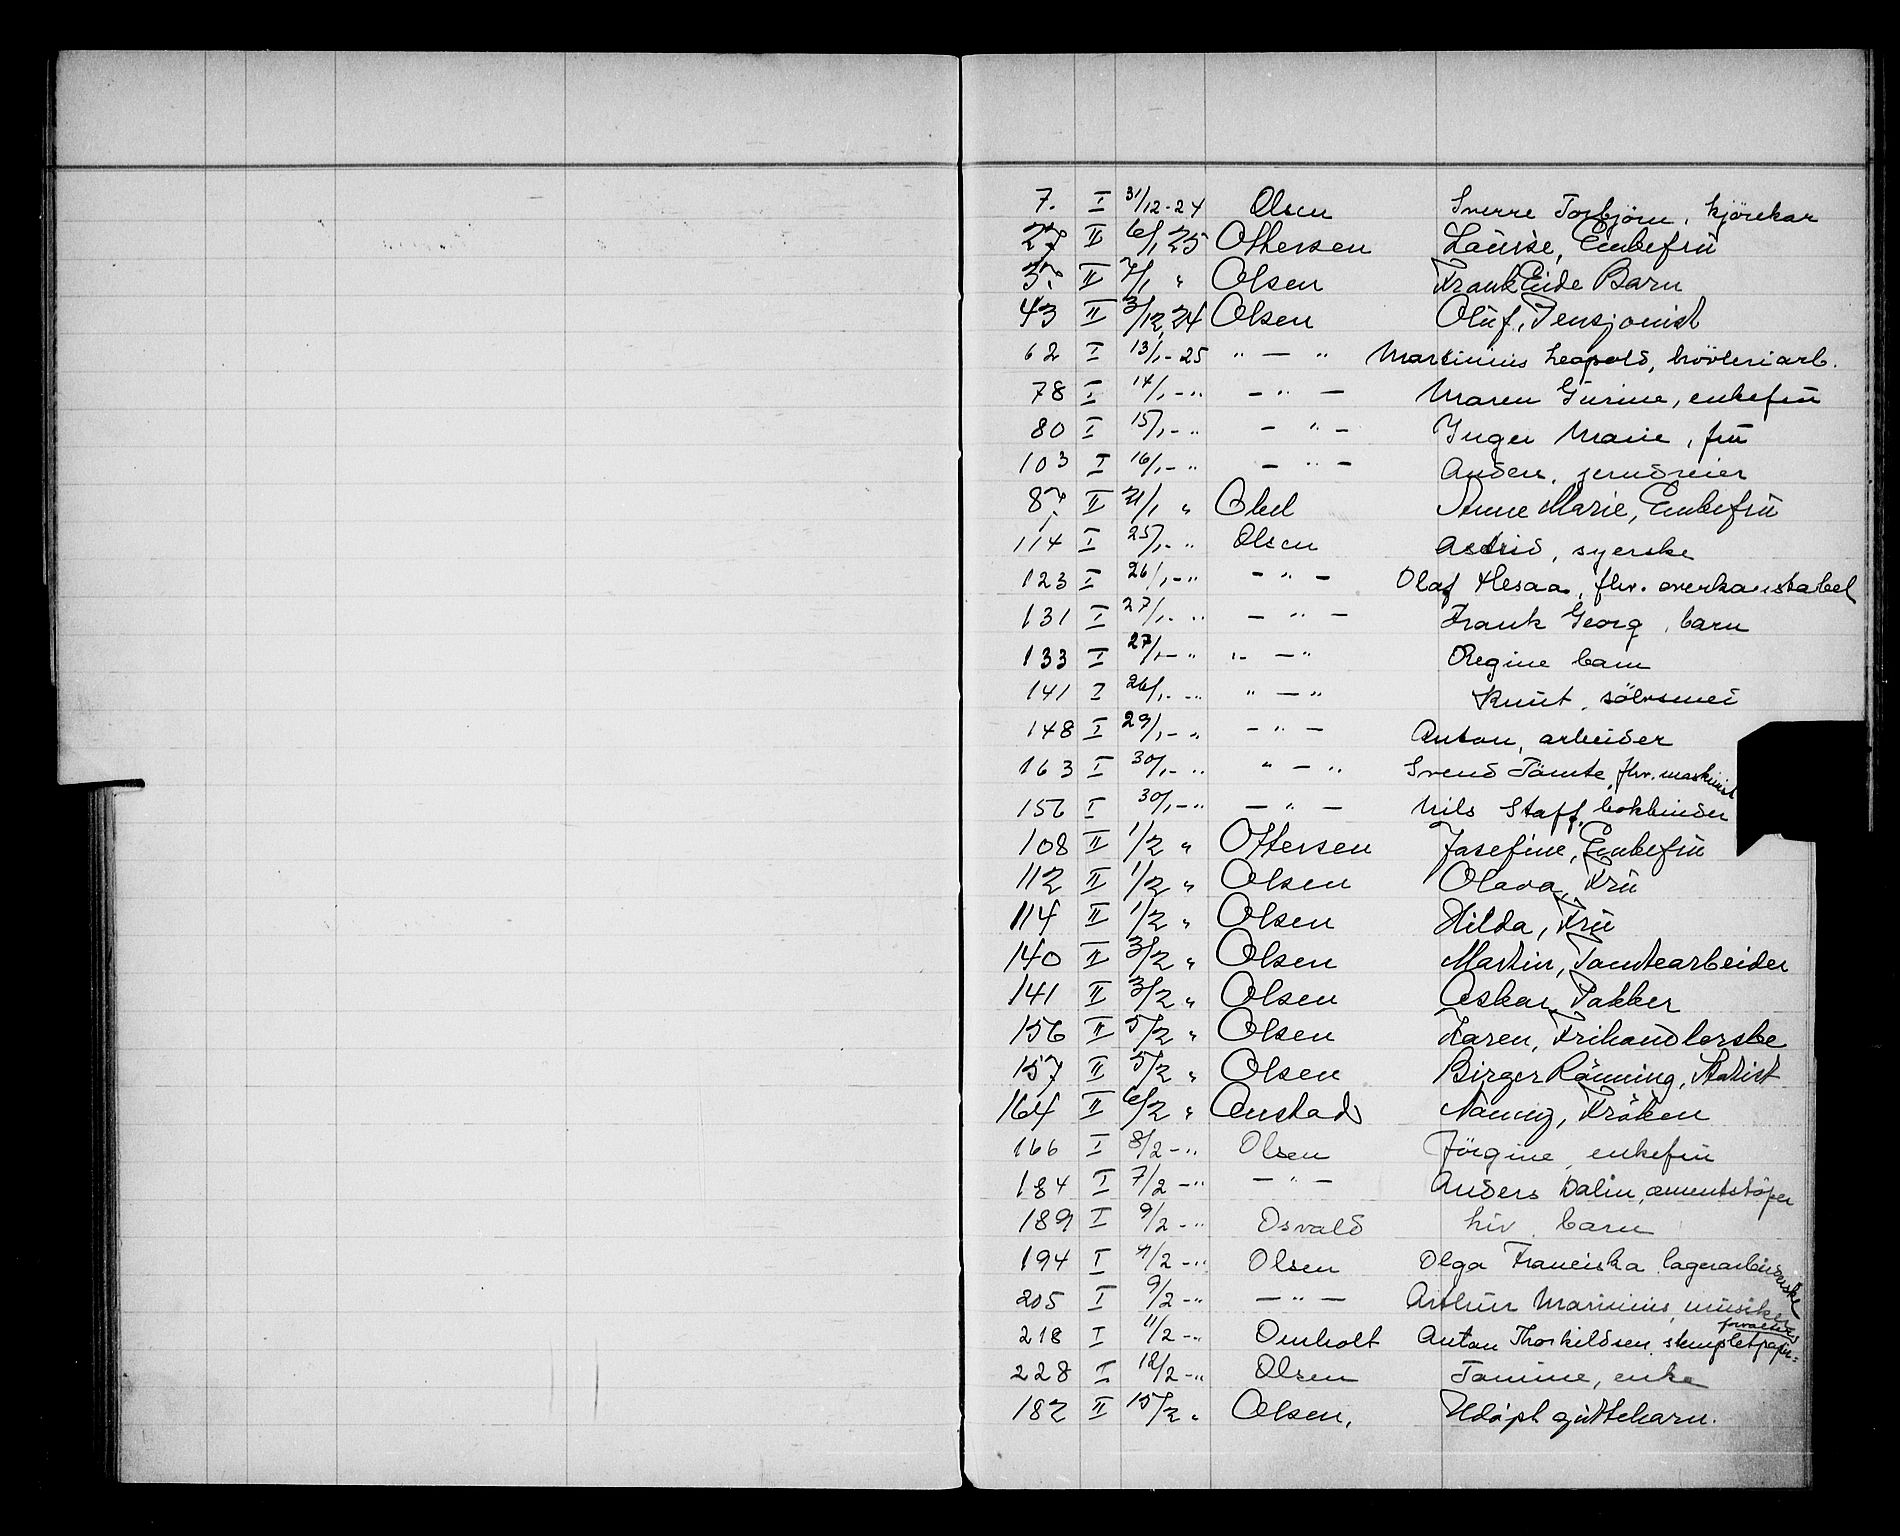 7. I 31/12-24 Olsen Sverre Torbjörn, kjörekar
27 II 6/1 25 Ottersen Laurse, Enkefru
37. II 7/1 " Olsen Frank Eide Barn
43 II 3/12 24 Olsen Oluf, Pensjonist
62 I 13/1-25 " — " Martinius Leopold, hövleriarb.
78 I 14/1-" — " — Maren Gurine, enkefru
80 I 15/1-" — " — Inger Marie, fru
103 I 16/1-" — " — Anders,
87. II 21/1 " Obel Anne Marie, Enkefru
114 I 25/1-" Olsen Astrid, syerske
123 I 26/1-" — " — Olaf Hesaa, fhv. overkonstabel
131 I 27/1-" — " — Frank Georg, barn
133 I 27/1-" " — " Regine barn
141 I 26/1-" " — " Knut, sölvsmed
148 I 29/1-" — " — Anton, arbeider
163 I 30/1-" " — " Svend Tömte, fhv. maskinist
156 I 30/1-" — " — Nils Staff, bokbinder
108 II 1/2 " Ottersen Josefine, Enkefru
112 II 1/2 " Olsen Olava, Fru
114 II 1/2 " Olsen Hilda, Fru
140 II 3/2 " Olsen Martin, Tomtearbeider
141 II 3/2 " Olsen Oskar, Pakker
156 II 5/2 " Olsen Karen, Frihandlerske
157 II 5/2 " Olsen Birger Rönning, Statist
164 II 6/2 " Onstad Nanny, Fröken
166 I 8/2-" Olsen Jörgine, enkefru
184 I 7/2-" — " — Anders Dalin, cementstöper
189 I 9/2-" Osvald Liv barn
194 I 4/2-" Olsen Olga Franciska lagerarbeiderske
205 I 9/2-" — " — Arthur Marinius, musiker
218 I 11/2-" Omholt Anton Thorkildsen, stempletpapir=
forvalters
228 I 12/2-" Olsen Tomine, enke
182 II 15/2 " Olsen, Udöpt guttebarn.